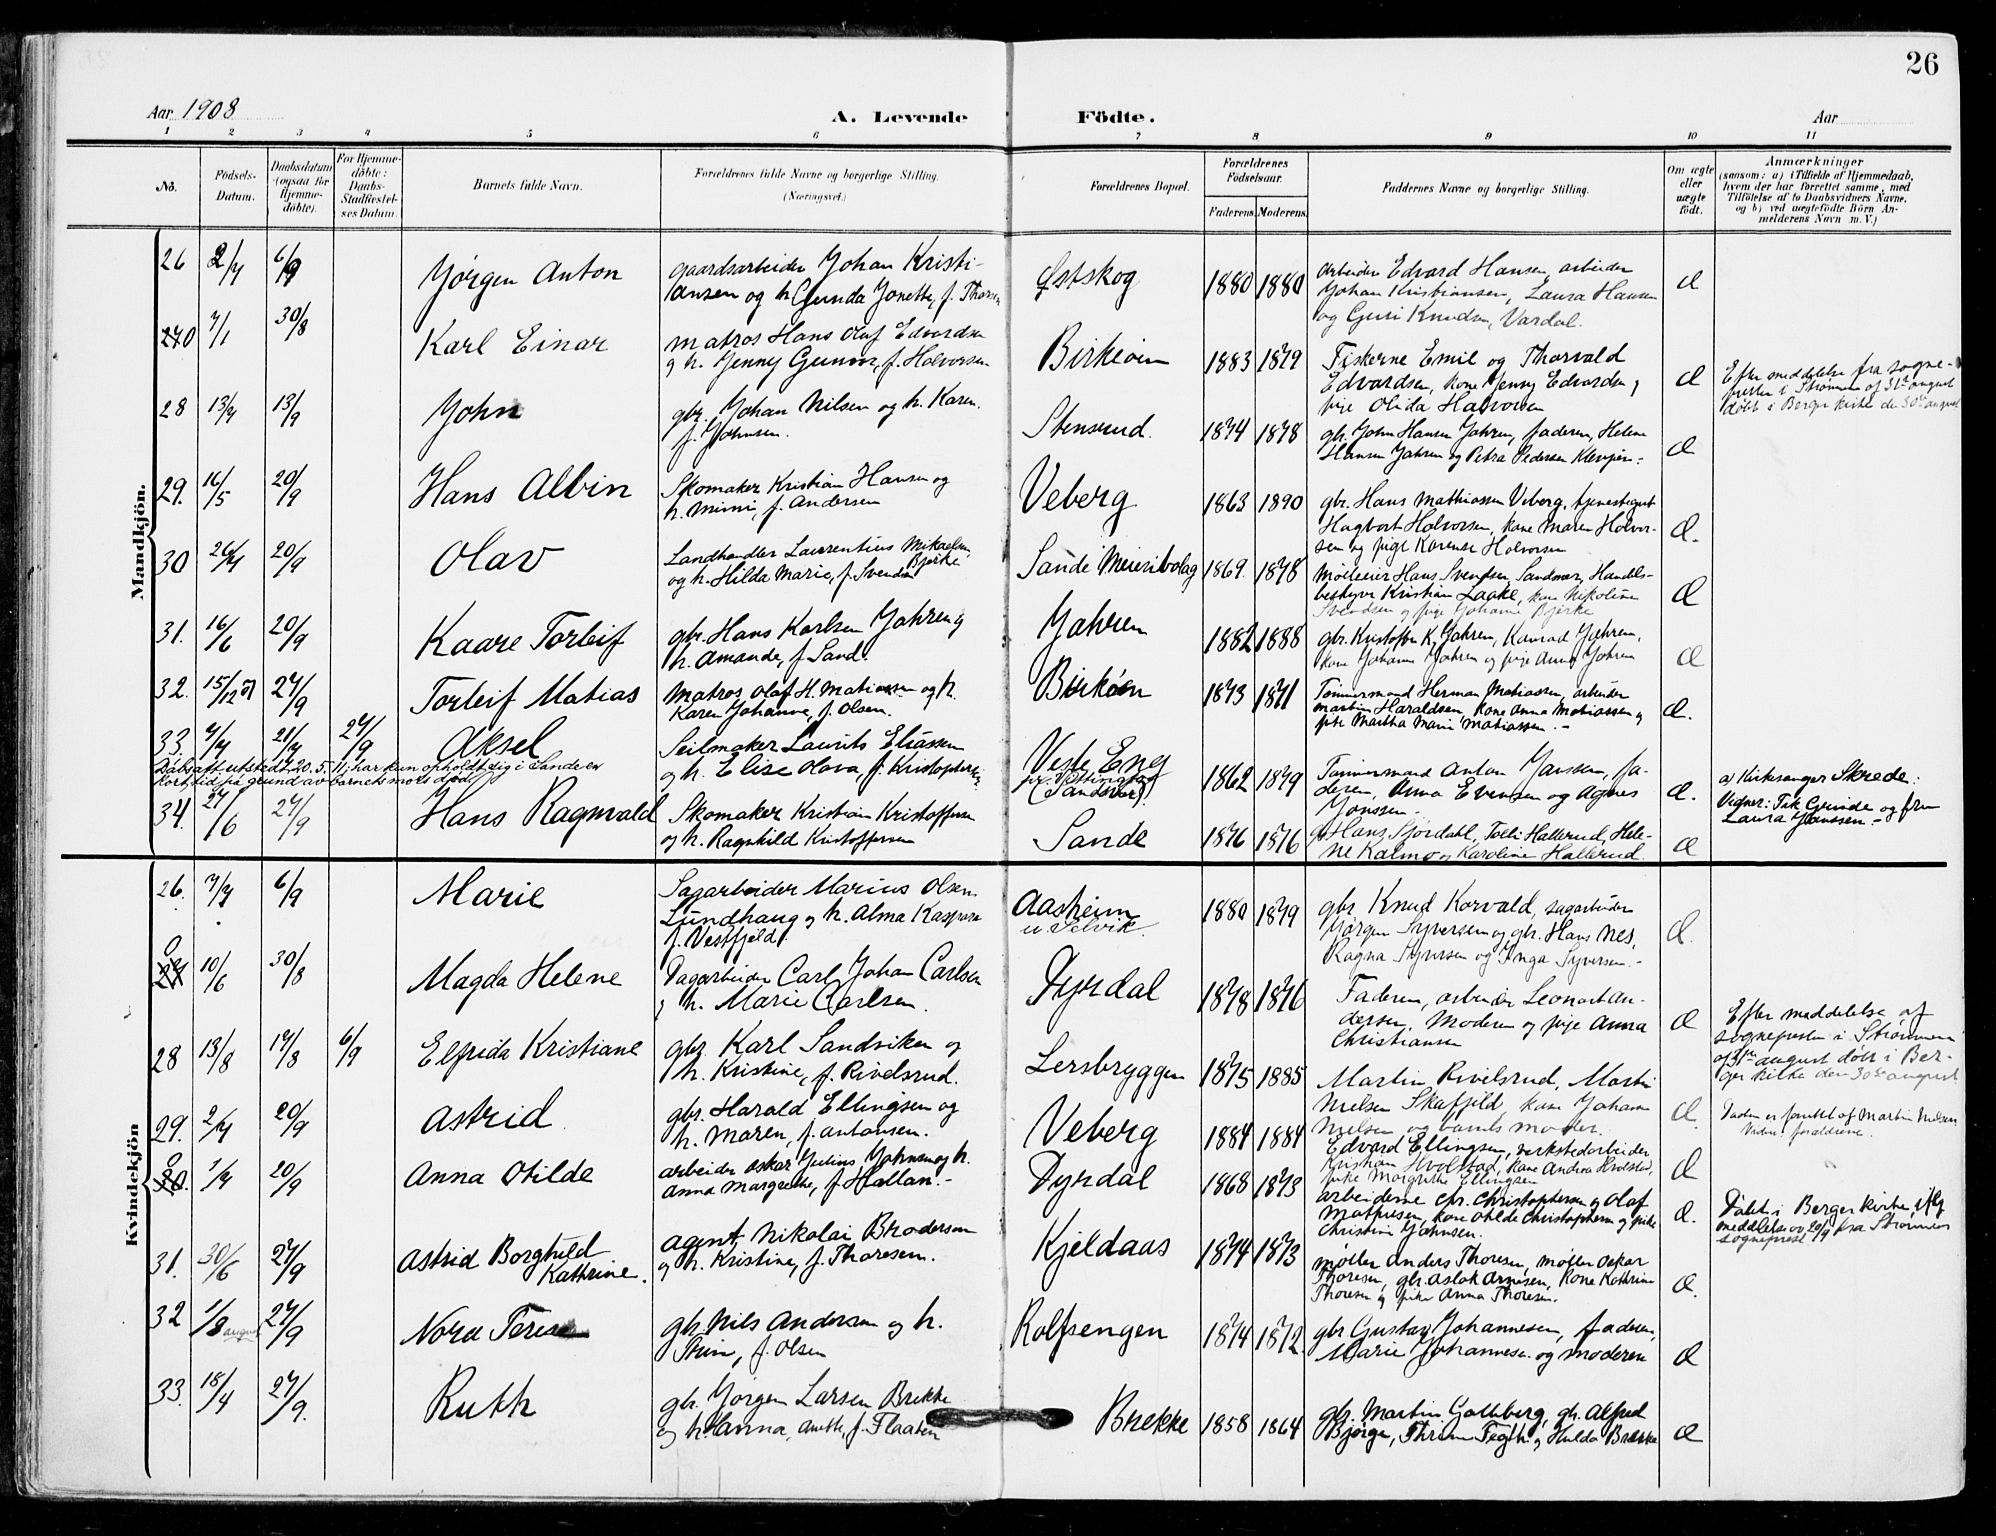 26
Aar 1908
A. Levende Födte.
Aar
1 2 3 4 5 6 7 8 9 10 11
No.
Födsels-
Datum.
Daabsdatum
(ogsaa for
Hjemme-
döbte).
For Hjemme-
döbte:
Daabs-
Stadfæstel-
ses Datum.
Barnets fulde Navn.
Forældrenes fulde Navne og borgerlige Stilling.
(Næringsvei.)
Forældrenes Bopæl.
Forældrenes
Födselsaar.
Faderens. Moderens.
Faddernes Navne og borgerlige Stilling.
Om ægte
eller
uægte
født.
Anmærkninger
(saasom: a) i Tilfælde af Hjemmedaab,
hvem der har forrettet samme, med
Tilföielse af to Daabsvidners Navne,
og b) ved uægtefödte Börn An-
melderens Navn m. V.)
Mandkjön.
26 2/7 6/9 Jørgen Anton
gaardsarbeider Johan Kristi-
ansen og h. Gunda Jonette, f. Thorsen
Østskog 1880 1880
arbeider Edvard Hansen, arbeider
Johan Kristiansen, Laura Hansen
og Guri Knudsen, Vardal.
Æ
270 7/1 30/8 Karl Einar
matros Hans Olaf Edvardsen
og h. Jenny Gunvor, f. Halvorsen
Birkeöen 1883 1879
Fiskerne Emil og Thorvald
Edvardsen, kone Jenny Edvardsen og
pige Olida Halvorsen
Æ
Efter meddelelse fra sogne-
presten i Strømmen af 31te august
døbt i Berger kirke den 30te august
28 13/7 13/9 John
gbr. Johan Nilsen og h. Karen
f. Johnsen.
Stensrud. 1874 1878
gbr. John Hansen Jahren, faderen, Helene
Hansen Jahren og Petra Pedersen
Æ
29. 16/5 20/9 Hans Albin
Skomaker Kristian Hansen og
h. Mimi, f. Andersen
Veberg 1863 1890
gbr. Hans Mathiassen Veberg, tjenestegut
Hagbart Halvorsen, kone Maren Halvor-
sen og pige Karense Halvorsen
Æ.
30 26/7 20/9 Olav
Landhandler Laurentius Mikaelsen
Bjerke
og h. Hilda Marie, f. Svendsen
Sande Meieribolag 1869. 1878
Mølleeier Hans Svendsen, Sandvær, Handels-
bestyrer Kristian Laake, kone Nikoline
Svendsen og pige Johanne Bjerke
Æ
31. 16/6 20/9 Kaare Torleif
gbr. Hans Karlsen Jahren og
h. Amande, f. Sand.
Jahren 1882 1888
gbr. Kristoffer K. Jahren, Konrad Jahren,
kone Johanne Jahren og pige Anna Jahren
Æ
32. 15/12 07 27/9 Torleif Matias
Matros Olaf H. Matiassen og h.
Karen Johanne, f. Olsen.
Birköen 1873 1871
Tømmermand Herman Matiassen, arbeider
Martin Haraldsen, kone Anna Matiassen og
pike Martha Marie Matiassen.-
Æ.
33. 7/7 21/7 27/9 Aksel
Seilmaker Laurits Eliassen
og h. Elise Olava f. Kristophersen
Dåbsatt utstedt 20.5.11; har kun opholdt sig i Sande en
kort tid på grund av barnets mors död.
Vesle Eng
(Sandvær) 1862 1879
Tømmermand Anton Janssen, fa-
deren, Anna Evensen og Agnes
Janssen.
Æ.
a) Kirkesanger Skrede.
Vidner: Frk Gunde og fru
Laura Janssen.-
34. 27/6 27/9 Hans Ragnvald
Skomaker Kristian Kristoffersen
og h. Ragnhild Kristoffersen
Sande 1876 1876
gbr Hans Sjørdahl, Hallerud, Hele-
ne Kalmo og Karoline Hallerud.
Æ
Kvindekjön
26. 7/7 6/9 Marie
Sagarbeider Marius Olsen
Lundhaug og h. Alma Kaspara
f. Vestfjeld.
Aasheim
u. Selvik. 1880 1879
gbr. Knud Korvald, sagarbeider
Jørgen Syversen og gbr. Hans Nes,
Ragna Syversen og Inga Syversen.-
Æ.
0
27 10/6 30/8 Magda Helene
Dagarbeider Carl Johan Carlsen
og h. Marie Carlsen.
Dyrdal 1878 1876
Faderen, arbeider Leonart An-
dersen, Moderen og pige Anna
Christiansen
Æ
Efter meddelelse af
sognepresten i Strømmen
af 31te august døbt i Ber-
ger kirke den 30te august
28 13/8 14/8 6/9 Elfrida Kristiane
gbr. Karl Sandviken og
h. Kristine, f. Rivelsrud.
Lersbryggen 1875 1885
Martin Rivelsrud, Martin
Nielsen Skafjeld, kone Johanne
Nielsen og barnets moder.
Æ.
Daaben er forrettet af Martin Nielsen
Vidner: forældrene.
29. 2/7 20/9 Astrid
gbr. Harald Ellingsen og
h. Maren, f. Antonsen.
Veberg 1884 1884
Edvard Ellingsen, verkstedarbeider
Kristian Hvalstad, kone Andrea Hvalstad,
pike Margrethe Ellingsen
Æ
0
30. 1/7 20/9 Anna Otilde
arbeider Oskar Julius Johnsen og h.
Anna Margrethe, f. Hallan.-
Dyrdal 1868 1873
arbeiderne Chr. Christophersen og Olaf
Mathisen, kone Otilde Christophersen og pike
Christine Johnsen.
Æ.
Døbt i Berger kirke, iflg
meddelelse av 20/9 fra Strømmen
sogneprest
31. 30/6 27/9 Astrid Borghild
Kathrine.
agent Nikolai Brodersen
og h. Kristine, f. Thoresen.
Kjeldaas 1874 1873
møller Anders Thoresen, møller Oskar
Thoresen, gbr. Aslak Arnesen, kone Kathrine
Thoresen og pike Anna Thoresen.
Æ.
32 1/8 august 27/9 Nora Terese
gbr. Nils Andersen og h.
Stine, f. Olsen
Rolfsengen 1874 1872.
gbr Gustav Johannesen, faderen,
Marie Johannesen og moderen
Æ
33. 18/4 27/9. Ruth
gbr. Jørgen Larsen Brekke
og h. Hanna, f. Flaaten
Brekke 1858 1864
gbr. Martin Golberg, gbr. Alfred
Bjørge, Thrine Fegth og Hulda Brekke
Æ